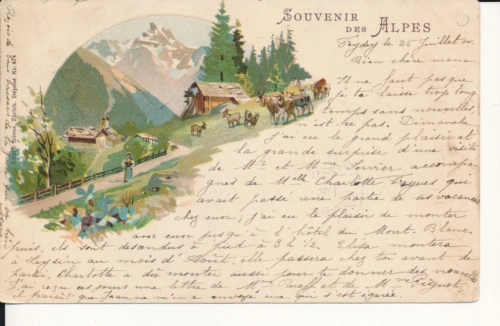 SOUVENIR
DES ALPES
Feydey le 25 Juillet
Bien chère maman
Il ne faut pas que
je te laisse trop long
temps sans nouvelles,
n'est ce pas. Dimanche
j'ai eu le grand plaisir et
la grande surprise d'une visite
de Mr et Mme accompa
gnés de Melle Charlotte qui
avait passé une partie de ses vacances
chez eux, j'ai eu le plaisir de monter
avec eux jusqu'à l'hôtel du Mont Blanc
puis, ils sont descendus à pied à 3 h ½. Elisa montera
à Leysin au mois d'Août, elle passera chez toi avant de
partir. Charlotte a dû monter aussi pour te donner des nouvelles
J'ai reçu ces jours une lettre de Mme et de Mme
il paraît que Jeanne m'a envoyé une qui s'est égarée.
Zürich. Dépose No.